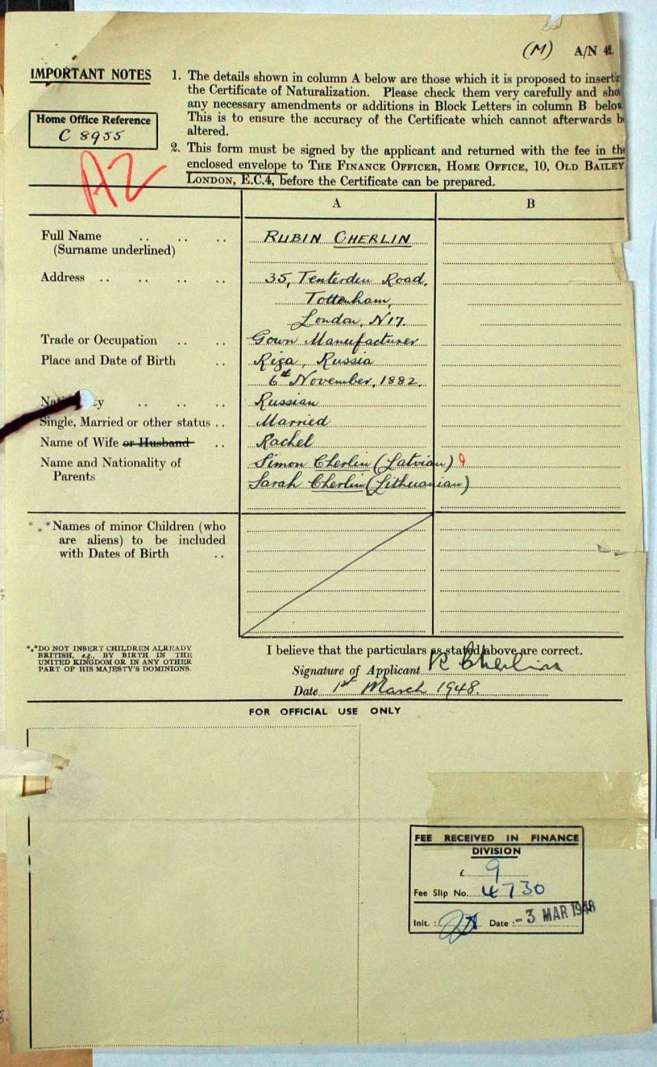 (M) A/N 42.
IMPORTANT NOTES
1. The details shown in column A below are those which it is proposed to insert
the Certificate of Naturalization. Please check them very carefully and
any necessary amendments or additions in Block Letters in column B
This is to ensure the accuracy of the Certificate which cannot afterwards
altered.
Home Office Reference
C 8955
A2
2. This form must be signed by the applicant and returned with the fee in the
enclosed envelope to THE FINANCE OFFICER, HOME OFFICE, 10, OLD BAILEY
LONDON, E.C.4, before the Certificate can be prepared.
A B
Full Name .. .. .. RUBIN CHERLIN
(Surname underlined)
Address .. .. .. .. 35, Tenterden Road,
Tottenham,
London, N17.
Trade or Occupation .. .. Gown Manufacturer
Place and Date of Birth .. Riga, Russia
6th November, 1882.
.. .. .. Russian
Single, Married or other status .. Married
Name of Wife or Husband .. Rachel
Name and Nationality of Simon Cherlin (Latvian)
Parents Sarah Cherlin (Lithuanian)
*.*Names of minor Children (who
are aliens) to be included
with Dates of Birth ..
*.*DO NOT INSERT CHILDREN ALREADY
BRITISH, e.g., BY BIRTH IN THE
UNITED KINGDOM OR IN ANY OTHER
PART OF HIS MAJESTY'S DOMINIONS.
I believe that the particulars as stated above are correct.
Signature of Applicant R Cherlin
Date 1st March 1948.
FOR OFFICIAL USE ONLY
FEE RECEIVED IN FINANCE
DIVISION
£ 9
Fee Slip No. 4730
Init. : Date :- 3 MAR 1948